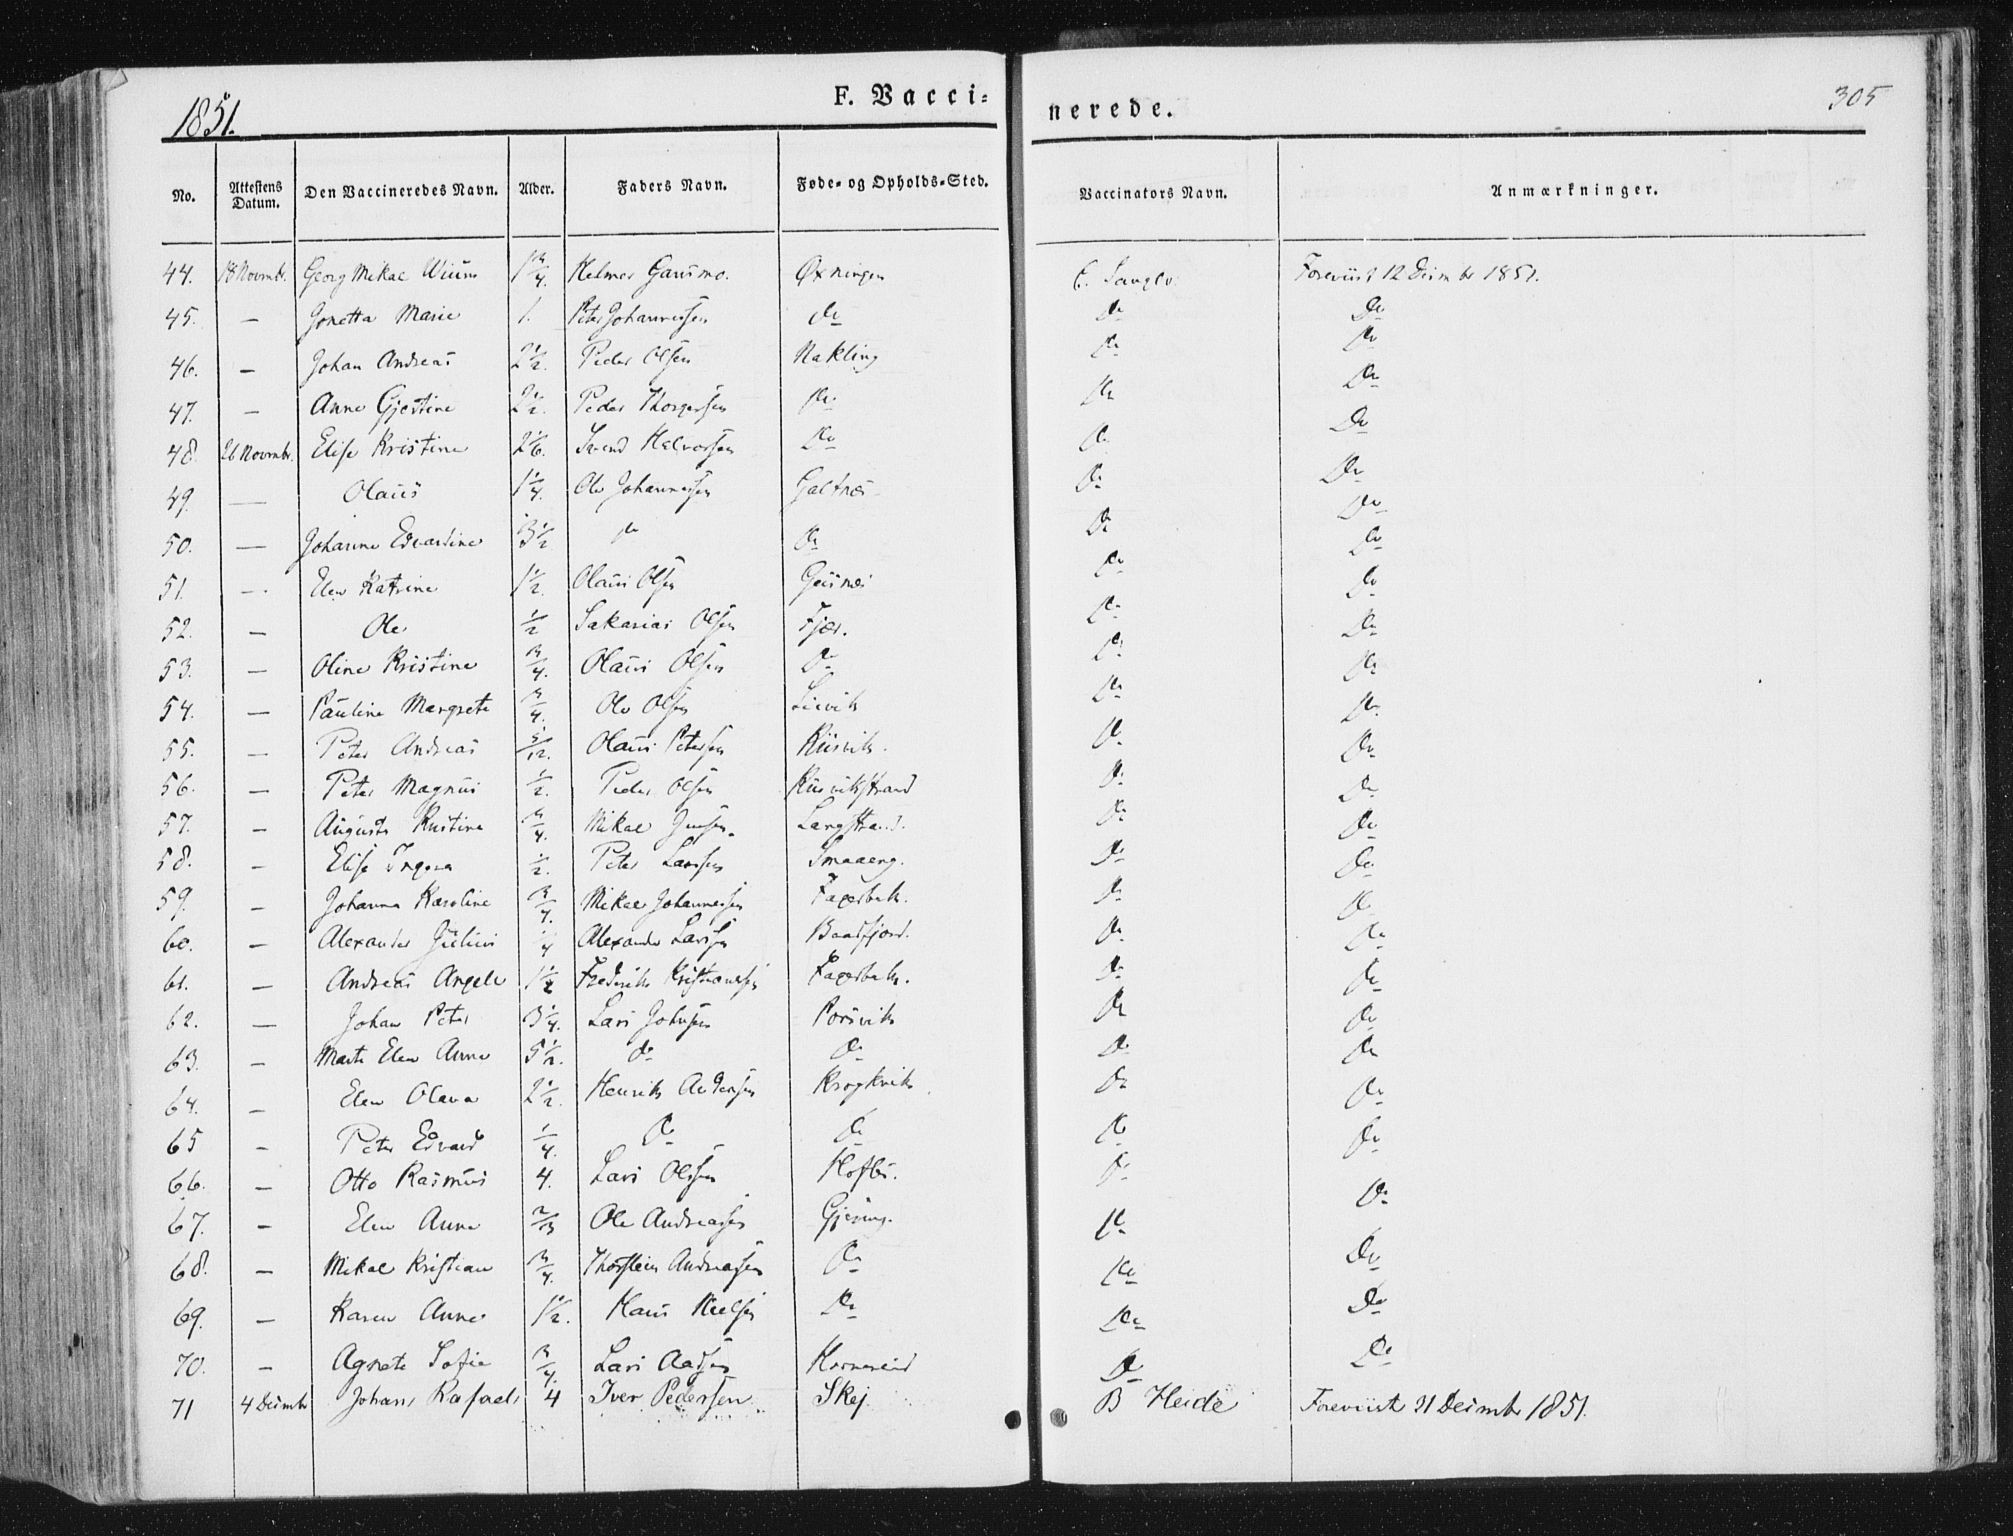 1851.
F. Vacci-
nerede.
305
No. Attestens Datum. Den Vaccineredes Navn. Alder. Faders Navn. Føde- og Opholds-Sted. Vaccinators Navn. Anmærkninger.
44. 18 Novmbr. Georg Mikal Wium 1 3/4. Helmer Gausmo. Øxningen Foreviist 12 Desmbr 1851.
45. — Jonetta Marie 1. Peter Johannessen do do do
46. — Johan Andreas 2 1/2. Peder Olsen Nakling do do
47. — Anne Gjertine 2 1/2. Peder Thorgersen do do do
48. 26 Novmbr. Elise Kristine 2 1/6. Svend Halvorsen do do do
49. — Olaus 1 1/4. Ole Johannessen Galtnes do do
50. — Johanne Edvardine 3 1/2 do do do do
51. — Elen Katrine 1 1/2. Olaus Olsen do do
52. — Ole 1/2 Sakarias Olsen Fjær. do do
53. — Oline Kristine 3/4. Olaus Olsen do do do
54. — Pauline Margrete 3/4. Ole Olsen do do
55. — Peter Andreas 5/12. Olaus Petersen Riisvik. do do
56. — Peter Magnus 1/2. Peder Olsen Riisvikstrand do do
57. — Augusta Kristine 3/4. Mikal Jensen. Langstrand. do do
58. — Elise Ingera 1/2. Peter Larsen Smaaeng. do do
59. — Johanna Karoline 3/4. Mikal Johannessen Fagerbak. do do
60. — Alexander Julius 1/4 Alexander Larsen do do
61. — Andreas Angel 1 1/2 Frederik Kristiansen Fagerbak. do do
62. — Johan Peter 3 1/4. Lars Johnsen Porsvik do do
63. — Marte Elen Anne 5 1/2. do do do do
64. — Elen Olava 2 1/2. Henrik Andersen Krogkvik do do
65 — Peter Edvard 1/4. do do do do
66. — Otto Rasmus 4. Lars Olsen do do
67. — Elen Anne 2/3 Ole Andreassen Gjesing. do do
68. — Mikal Kristian 3/4. Thorstein Andreassen do do do
69. — Karen Anne 1 1/2. Hans Nielsen do do do
70. — Agnete Sofie 3/4. Lars Aadsen Hornereid do do
71 4 Desmbr Johans Rafael 4 Iver Pedersen Skej B Heide Foreviist 31 Desmbr 1851.